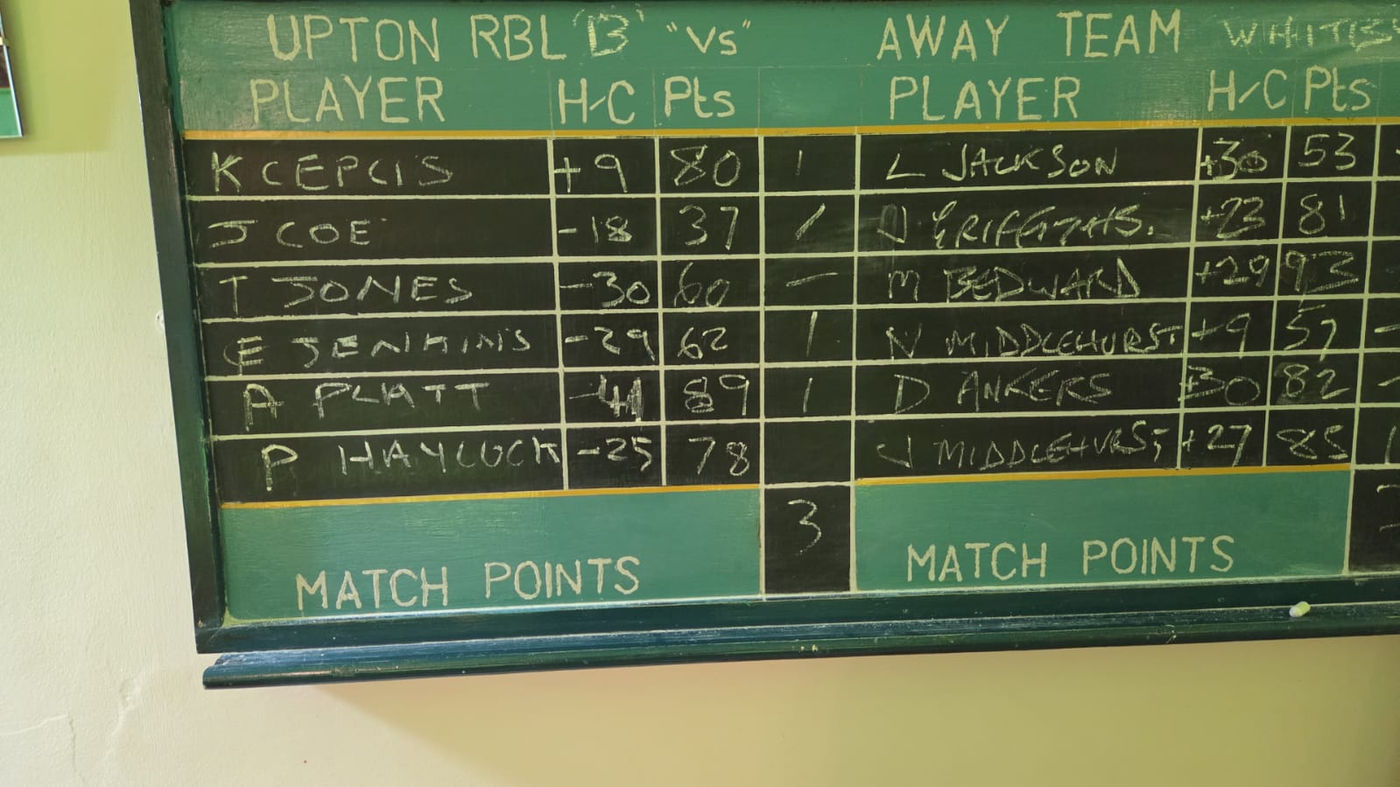 UPTON RBL 'B' "VS" AWAY TEAM WHITB
PLAYER H/C Pts PLAYER H/C Pts
K CEPCIS +9 80 1 L JACKSON +30 53
J COE -18 37 / D GRIFFITHS. +23 81
T JONES -30 60 - M BEDWARD +29 93
E JENKINS -29 62 1 N MIDDLEHURST +9 57
A PLATT 89 1 D ANKERS +30 82
P HAYCOCK -25 78 J MIDDLEHURST +27 85
3
MATCH POINTS MATCH POINTS